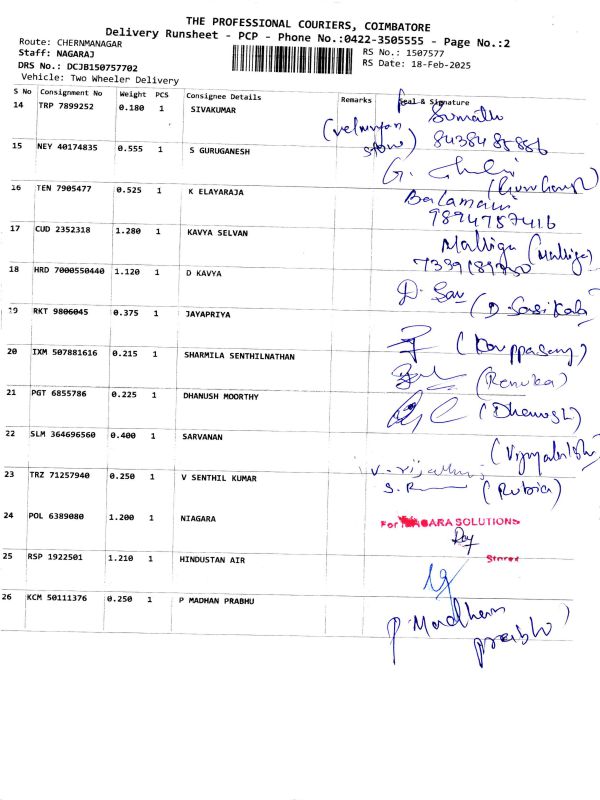 THE PROFESSIONAL COURIERS, COIMBATORE
Delivery Runsheet - PCP - Phone No.:0422-3505555 - Page No.:2
Route: CHERNMANAGAR
Staff: NAGARAJ
DRS No.: DCJB150757702
Vehicle: Two Wheeler Delivery
RS No.: 1507577
RS Date: 18-Feb-2025
S No Consignment No Weight PCS Consignee Details Remarks Seal & Signature
14 TRP 7899252 0.180 1 SIVAKUMAR
Sumathi
8438485886
15 NEY 40174835 0.555 1 S GURUGANESH
G.
16 TEN 7905477 0.525 1 K ELAYARAJA
Balamani
9894757416
17 CUD 2352318 1.280 1 KAVYA SELVAN
Malliga (Malliga)
18 HRD 7000550440 1.120 1 D KAVYA
D. (D. Sasikala)
19 RKT 9806045 0.375 1 JAYAPRIYA
(Karuppasamy)
20 IXM 507881616 0.215 1 SHARMILA SENTHILNATHAN
(Renuka)
21 PGT 6855786 0.225 1 DHANUSH MOORTHY
(Dhanush)
22 SLM 364696560 0.400 1 SARVANAN
(Vijayalakshmi)
23 TRZ 71257940 0.250 1 V SENTHIL KUMAR
S. R (Rubia)
24 POL 6389080 1.200 1 NIAGARA
For NIAGARA SOLUTIONS
Stores
25 RSP 1922501 1.210 1 HINDUSTAN AIR
26 KCM 50111376 0.250 1 P MADHAN PRABHU
P. Madhan
prabhu